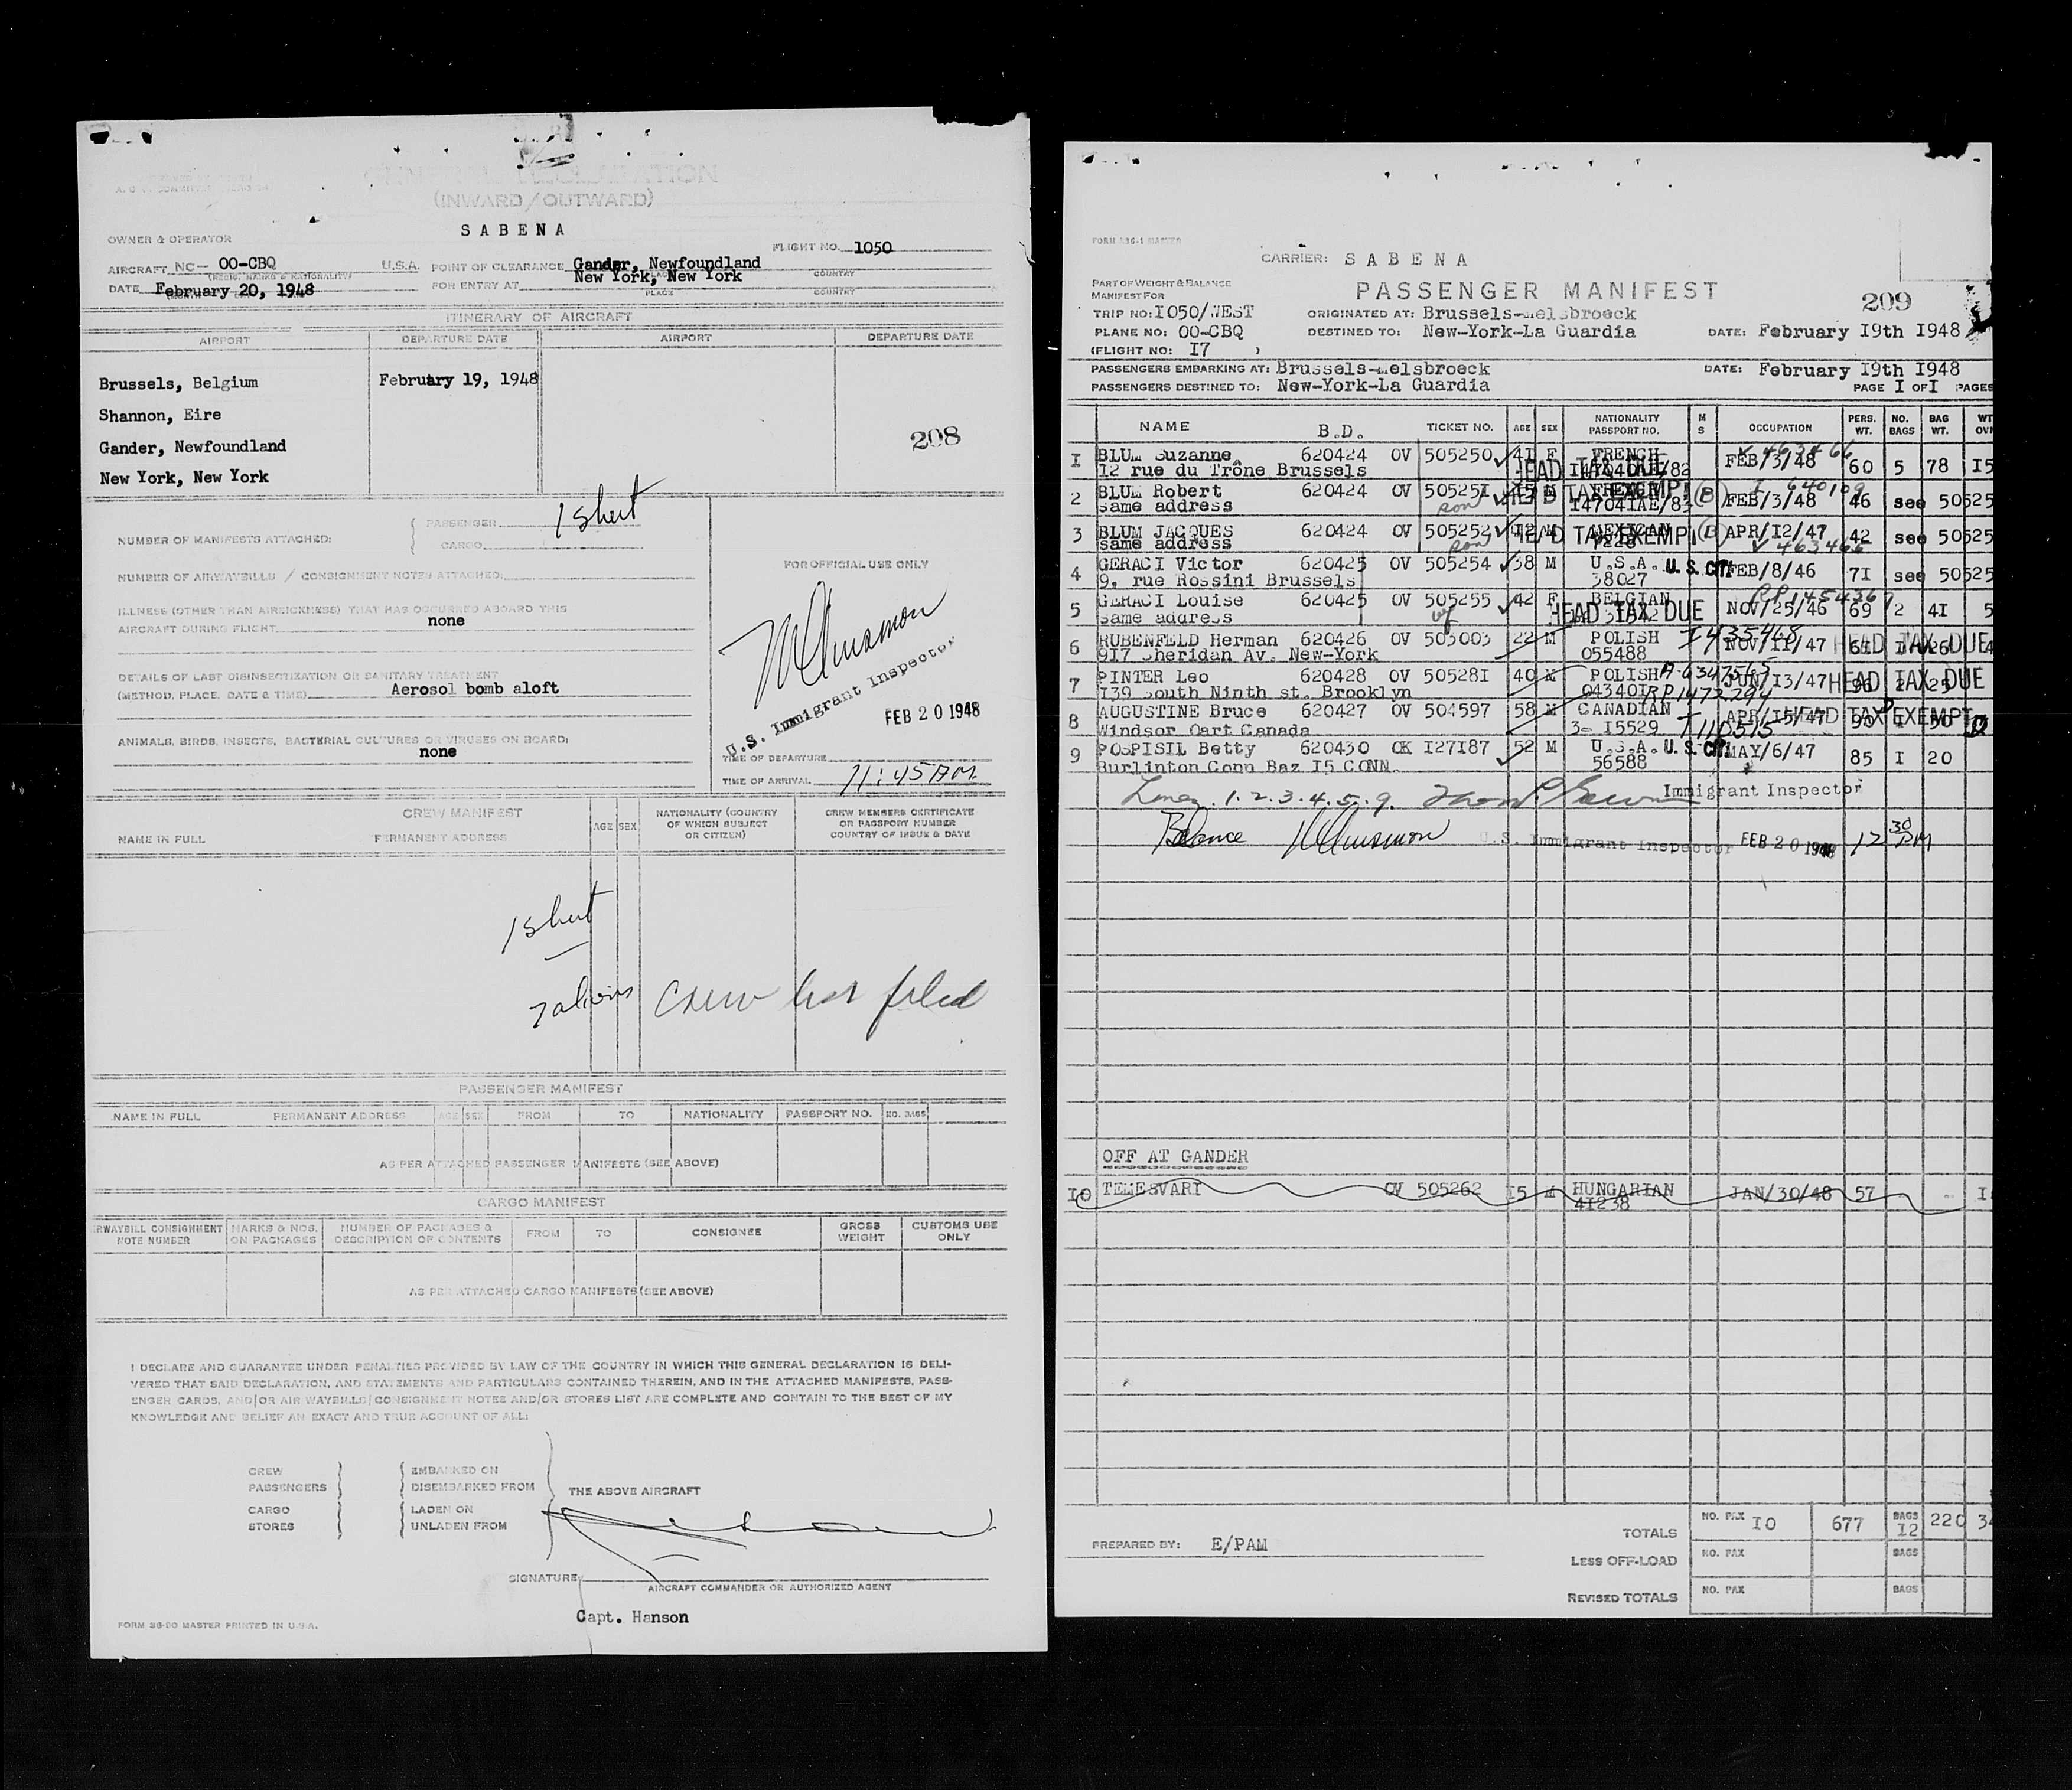 (INWARD/OUTWARD)
SABENA
OWNER & OPERATOR
FLIGHT NO. 1050
AIRCRAFT NC- OO-CBQ U.S.A. POINT OF CLEARANCE Gander, Newfoundland
(REGIS. MARKS & NATIONALITY) PLACE COUNTRY
DATE February 20, 1948 FOR ENTRY AT New York, New York
PLACE COUNTRY
ITINERARY OF AIRCRAFT
AIRPORT DEPARTURE DATE AIRPORT DEPARTURE DATE
Brussels, Belgium February 19, 1948
Shannon, Eire
Gander, Newfoundland 208
New York, New York
NUMBER OF MANIFESTS ATTACHED: PASSENGER 1 Sheet
CARGO
NUMBER OF AIRWAYBILLS / CONSIGNMENT NOTES ATTACHED:
ILLNESS (OTHER THAN AIRSICKNESS) THAT HAS OCCURRED ABOARD THIS
AIRCRAFT DURING FLIGHT none
DETAILS OF LAST DISINSECTIZATION OR SANITARY TREATMENT
(METHOD, PLACE, DATE & TIME) Aerosol bomb aloft
ANIMALS, BIRDS, INSECTS, BACTERIAL CULTURES OR VIRUSES ON BOARD:
none
FOR OFFICIAL USE ONLY
U.S. Immigrant Inspector
FEB 20 1948
TIME OF DEPARTURE
TIME OF ARRIVAL 11:45 AM
CREW MANIFEST
NAME IN FULL PERMANENT ADDRESS AGE SEX NATIONALITY (COUNTRY OF WHICH SUBJECT OR CITIZEN) CREW MEMBERS CERTIFICATE OR PASSPORT NUMBER COUNTRY OF ISSUE & DATE
1 Sheet
7 aliens Crew list filed
PASSENGER MANIFEST
NAME IN FULL PERMANENT ADDRESS AGE SEX FROM TO NATIONALITY PASSPORT NO. NO. BAGS
AS PER ATTACHED PASSENGER MANIFESTS (SEE ABOVE)
CARGO MANIFEST
AIRWAYBILL CONSIGNMENT NOTE NUMBER MARKS & NOS. ON PACKAGES NUMBER OF PACKAGES & DESCRIPTION OF CONTENTS FROM TO CONSIGNEE GROSS WEIGHT CUSTOMS USE ONLY
AS PER ATTACHED CARGO MANIFESTS (SEE ABOVE)
I DECLARE AND GUARANTEE UNDER PENALTIES PROVIDED BY LAW OF THE COUNTRY IN WHICH THIS GENERAL DECLARATION IS DELI-
VERED THAT SAID DECLARATION, AND STATEMENTS AND PARTICULARS CONTAINED THEREIN, AND IN THE ATTACHED MANIFESTS, PASS-
ENGER CARDS, AND/OR AIR WAYBILLS/CONSIGNMENT NOTES AND/OR STORES LIST ARE COMPLETE AND CONTAIN TO THE BEST OF MY
KNOWLEDGE AND BELIEF AN EXACT AND TRUE ACCOUNT OF ALL:
CREW EMBARKED ON
PASSENGERS DISEMBARKED FROM THE ABOVE AIRCRAFT
CARGO LADEN ON
STORES UNLADEN FROM
SIGNATURE
AIRCRAFT COMMANDER OR AUTHORIZED AGENT
Capt. Hanson
FORM 36-90 MASTER PRINTED IN U.S.A.
CARRIER: SABENA
PART OF WEIGHT & BALANCE
MANIFEST FOR PASSENGER MANIFEST 209
TRIP NO: I050/WEST ORIGINATED AT: Brussels-Melsbroeck
PLANE NO: OO-CBQ DESTINED TO: New-York-La Guardia DATE: February I9th I948
(FLIGHT NO: I7 )
PASSENGERS EMBARKING AT: Brussels-Melsbroeck DATE: February I9th I948
PASSENGERS DESTINED TO: New-York-La Guardia PAGE I OF I PAGES
NAME B.D. TICKET NO. AGE SEX NATIONALITY PASSPORT NO. M S OCCUPATION PERS. WT. NO. BAGS BAG WT.
I BLUM Suzanne 620424 OV 505250 4I F FRENCH FEB/3/48 60 5 78 I5
12 rue du Trône Brussels I47040AE/82 HEAD TAX DUE
2 BLUM Robert 620424 OV 50525I M FRENCH FEB/3/48 46 see 50525
same address son I4704IAE/83 HEAD TAX EXEMPT (B)
3 BLUM JACQUES 620424 OV 505252 I2 M MEXICAN APR/I2/47 42 see 50525
same address son HEAD TAX EXEMPT (B)
4 GERACI Victor 620425 OV 505254 38 M U.S.A. U.S. CIT. FEB/8/46 7I see 50525
9, rue Rossini Brussels 38027
5 GERACI Louise 620425 OV 505255 42 F BELGIAN NOV/25/46 69 2 4I 5
same address HEAD TAX DUE
6 RUBENFELD Herman 620426 OV 505003 22 M POLISH NOV/II/47 HEAD TAX DUE
917 Sheridan Av. New-York 055488
7 PINTER Leo 620428 OV 50528I 40 M POLISH JUN/I3/47 HEAD TAX DUE
I39 South Ninth st. Brooklyn 04340I
8 AUGUSTINE Bruce 620427 OV 504597 58 M CANADIAN APR/I5/47 90 I 30 HEAD TAX EXEMPT
Windsor Oart Canada 3- I5529 T110515
9 POSPISIL Betty 620430 OK I27I87 52 M U.S.A. U.S. CIT. MAY/6/47 85 I 20
Burlinton Conn Baz I5 CONN. 56588
Lines 1. 2. 3. 4. 5. 9. Immigrant Inspector
Balance U.S. Immigrant Inspector FEB 20 1948 12 30 PM
OFF AT GANDER
I0 TEMESVARI OV 505262 I5 M HUNGARIAN JAN/30/48 57 -
4I238
TOTALS NO. PAX I0 677 BAGS I2 220
PREPARED BY: E/PAM LESS OFF-LOAD NO. PAX BAGS
REVISED TOTALS NO. PAX BAGS